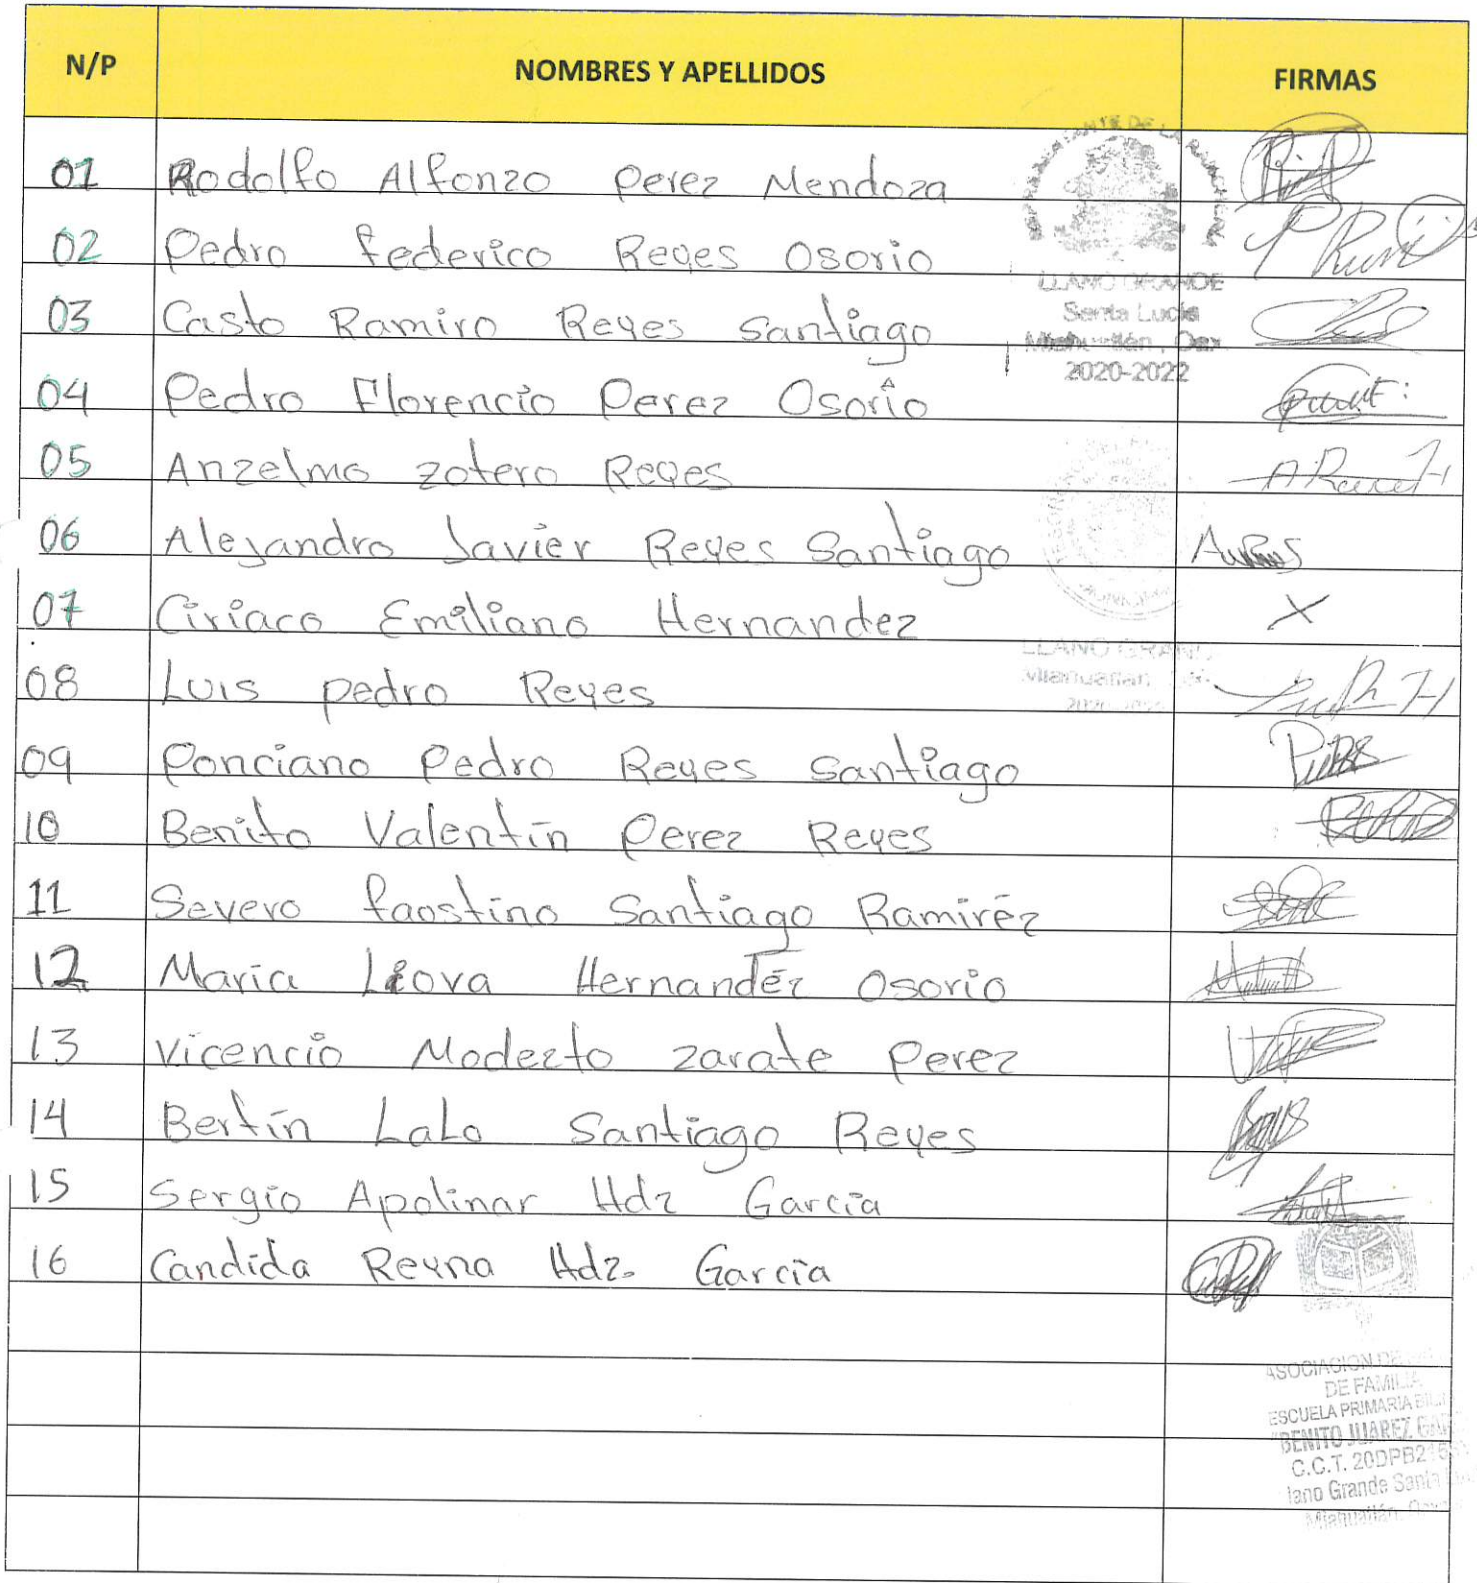 N/P NOMBRES Y APELLIDOS FIRMAS
01 Rodolfo Alfonzo Perez Mendoza
02 Pedro Federico Reyes Osorio
03 Casto Ramiro Reyes Santiago
04 Pedro Florencio Perez Osorio
05 Anzelmo Zotero Reyes
06 Alejandro Javier Reyes Santiago
07 Ciriaco Emiliano Hernandez X
08 Luis pedro Reyes
09 Ponciano Pedro Reyes Santiago
10 Benito Valentín Perez Reyes
11 Severo Faostino Santiago Ramiréz
12 Maria Liova Hernandéz Osorio
13 Vicencio Modezto zarate Perez
14 Bertín Lalo Santiago Reyes
15 Sergio Apolinar Hdz García
16 Candida Reyna Hdz. García
LLANO GRANDE
Santa Lucia
Miahuatlán, Oax.
2020-2022
LLANO GRAND
Miahuatlan
ASOCIACION DE
DE FAMILIA
ESCUELA PRIMARIA
"BENITO JUAREZ
C.C.T. 20DPB21
lano Grande Santa
Miahuatlán,